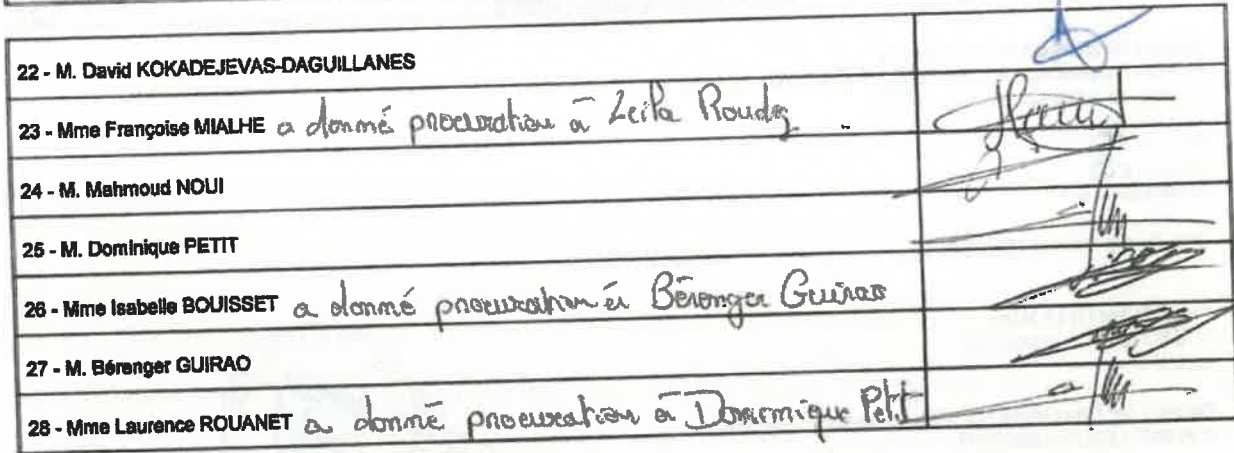 22 - M. David KOKADEJEVAS-DAGUILLANES
23 - Mme Françoise MIALHE a donné procuration à Leila Roudez
24 - M. Mahmoud NOUI
25 - M. Dominique PETIT
26 - Mme Isabelle BOUISSET a donné procuration à Bérenger Guirao
27 - M. Bérenger GUIRAO
28 - Mme Laurence ROUANET a donné procuration à Dominique Petit